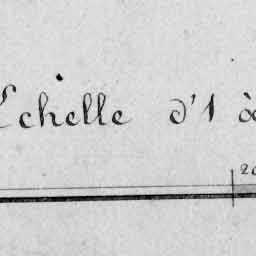 Echelle d'1 à
20